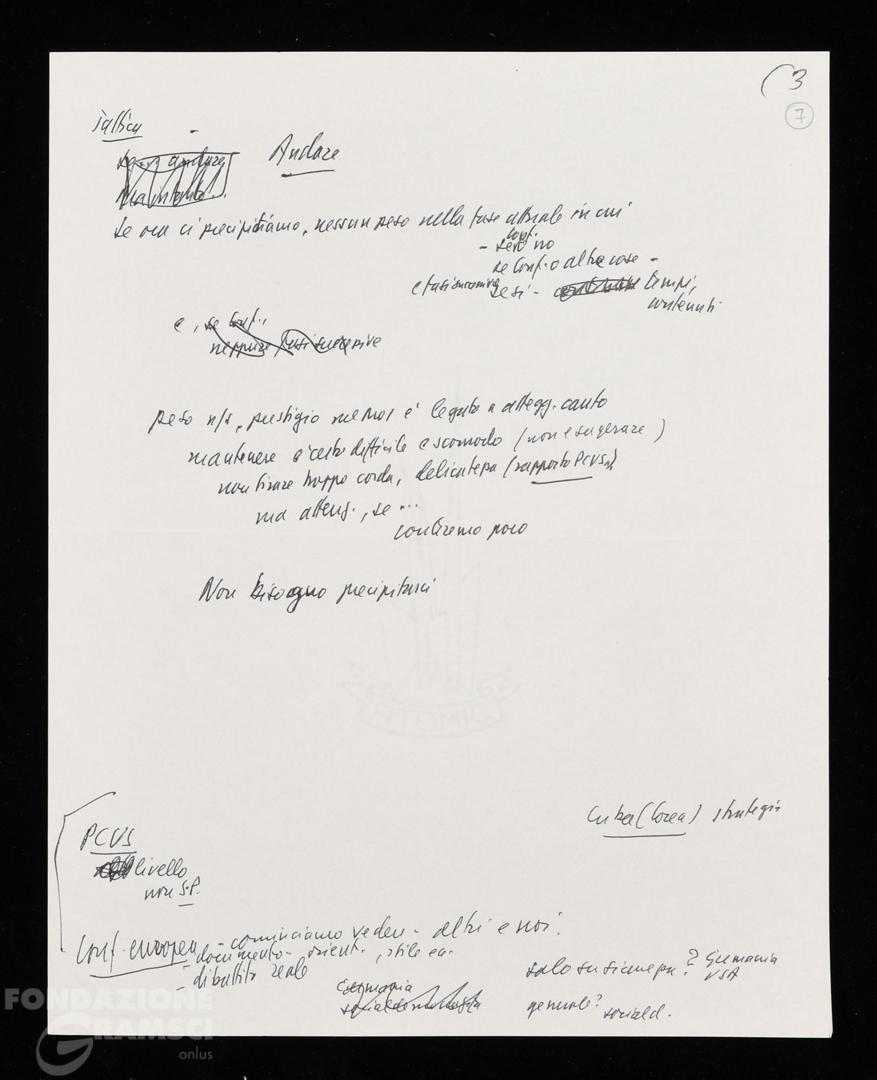 (3
7
tattica
Andare
Se ora ci precipitiamo, nessun peso nella fase attuale in cui
conf.
- se no
se Conf. o altre cose -
e fasi successive se sì - tempi,
contenuti
e, se Conf.,
neppure fasi successive
peso n/s, prestigio nel Mov. è legato a attegg. cauto
mantenere è certo difficile e scomodo (non esagerare)
non tirare troppo corda, delicatezza (rapporto PCUS)
ma attenz., se ...
conteremo poco
Non bisogna precipitarsi
Cuba (Corea) strategia
PCUS
livello
non S.P.
Conf. europea - cominciamo vedere - altri e noi.
- documento - orient., stile ecc.
- dibattito reale
Germania
socialdemocrazia
solo su sicurezza? Germania
USA
generale? sociald.
FONDAZIONE
GRAMSCI
onlus